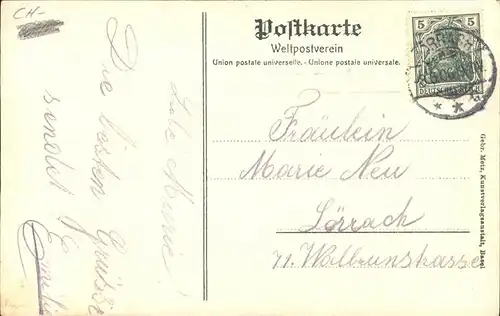 CH-
Postkarte
Weltpostverein
Union postale universelle. - Unione postale universale.
5 5
DEUTSCHES REICH
Liebe Marie!
Die besten Grüsse
sendet
Emilie
Fräulein
Marie Neu
Lörrach
71. Wallbrunstrasse
Gebr. Metz, Kunstverlagsanstalt, Basel